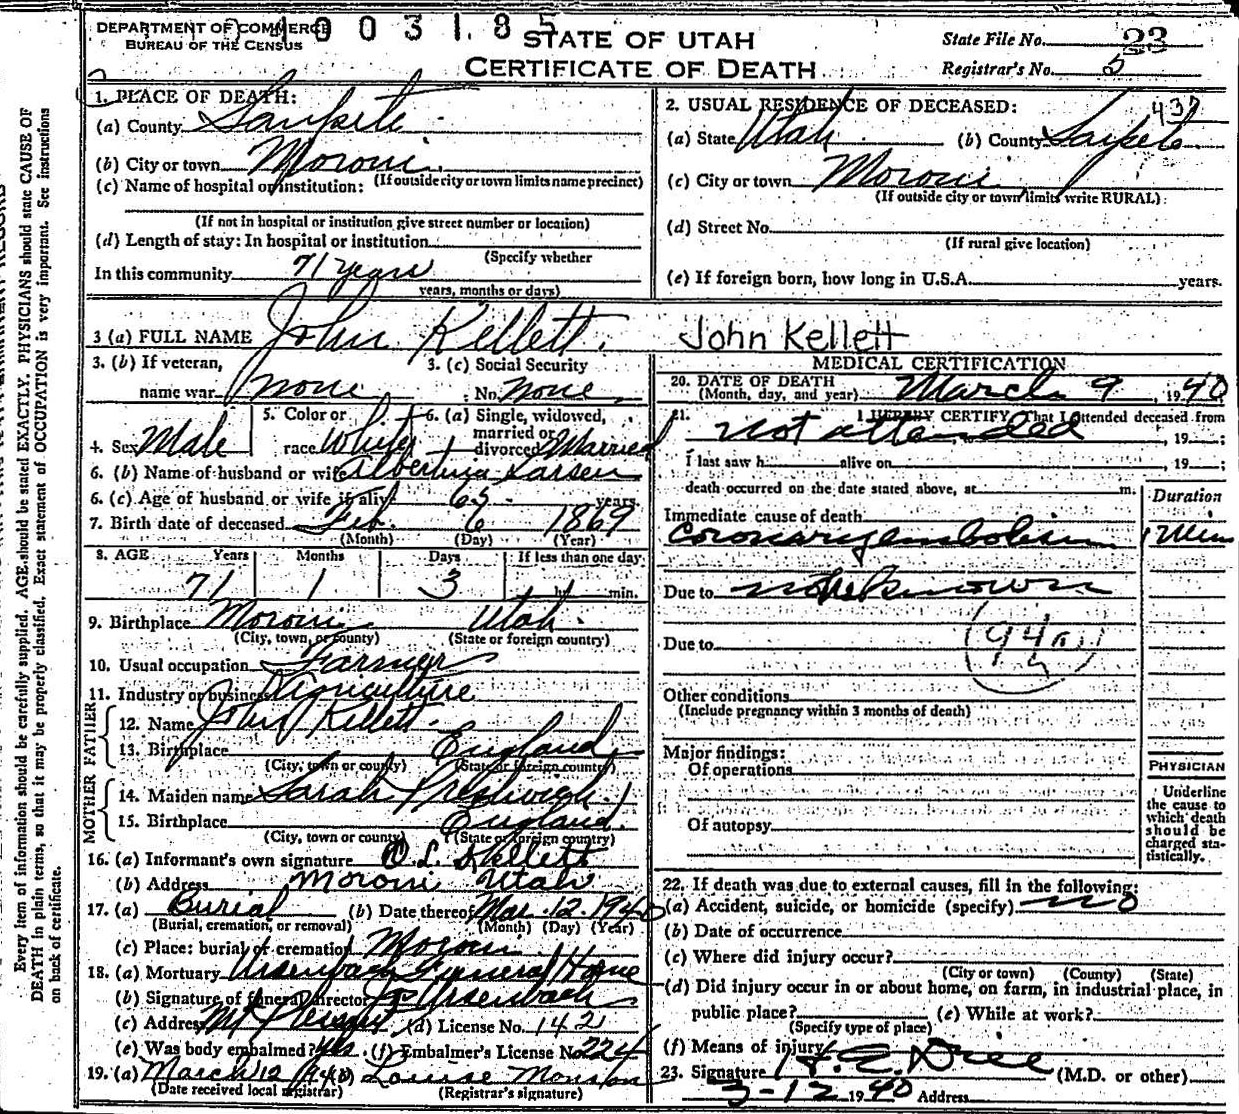 DEPARTMENT OF COMMERCE
BUREAU OF THE CENSUS
1003185
STATE OF UTAH
CERTIFICATE OF DEATH
State File No. 23
Registrar's No. 5
1. PLACE OF DEATH:
(a) County Sanpete
(b) City or town Moroni
(If outside city or town limits name precinct)
(c) Name of hospital or institution:
(If not in hospital or institution give street number or location)
(d) Length of stay: In hospital or institution
(Specify whether
In this community 71 years
years, months or days)
2. USUAL RESIDENCE OF DECEASED:
437
(a) State Utah (b) County Sanpete
(c) City or town Moroni
(If outside city or town limits write RURAL)
(d) Street No.
(If rural give location)
(e) If foreign born, how long in U.S.A. years.
3 (a) FULL NAME John Kellett. John Kellett
3. (b) If veteran, 3. (c) Social Security
name war none ; No. none
4. Sex Male 5. Color or race White 6. (a) Single, widowed, married or divorced Married
6. (b) Name of husband or wife Albertina Larsen
6. (c) Age of husband or wife if alive 65 years
7. Birth date of deceased Feb. 6 1869
(Month) (Day) (Year)
8. AGE Years Months Days If less than one day
71 1 3 hr. min.
9. Birthplace Moroni Utah.
(City, town, or county) (State or foreign country)
10. Usual occupation Farmer
11. Industry or business Agriculture
FATHER
12. Name John Kellett
13. Birthplace England
(City, town or county) (State or foreign country)
MOTHER
14. Maiden name Sarah Prestwich
15. Birthplace England.
(City, town or county) (State or foreign country)
16. (a) Informant's own signature O. L. Kellett
(b) Address Moroni Utah
17. (a) Burial (b) Date thereof Mar. 12. 1940
(Burial, cremation, or removal) (Month) (Day) (Year)
(c) Place: burial or cremation Moroni
18. (a) Mortuary Ursenbach Funeral Home
(b) Signature of funeral director Ursenbach
(c) Address Mt Pleasant (d) License No. 142
(e) Was body embalmed? Yes. (f) Embalmer's License No. 224
19. (a) March 12 1940 (b) Louise
(Date received local registrar) (Registrar's signature)
MEDICAL CERTIFICATION
20. DATE OF DEATH
(Month, day, and year) March 9, 1940
21. I HEREBY CERTIFY, That I attended deceased from
not attended, 19 ;
I last saw h alive on , 19 ;
death occurred on the date stated above, at m.
Duration
Immediate cause of death
coronary embolism 1 Min
Due to not known
Due to
(94a)
Other conditions
(Include pregnancy within 3 months of death)
Major findings:
Of operations
Of autopsy
PHYSICIAN
Underline
the cause to
which death
should be
charged sta-
tistically.
22. If death was due to external causes, fill in the following:
(a) Accident, suicide, or homicide (specify) no
(b) Date of occurrence
(c) Where did injury occur?
(City or town) (County) (State)
(d) Did injury occur in or about home, on farm, in industrial place, in
public place? (e) While at work?
(Specify type of place)
(f) Means of injury
23. Signature H. E. (M.D. or other)
3-12 1940 Address
Every item of information should be carefully supplied. AGE should be stated EXACTLY. PHYSICIANS should state CAUSE OF
DEATH in plain terms, so that it may be properly classified. Exact statement of OCCUPATION is very important. See instructions
on back of certificate.